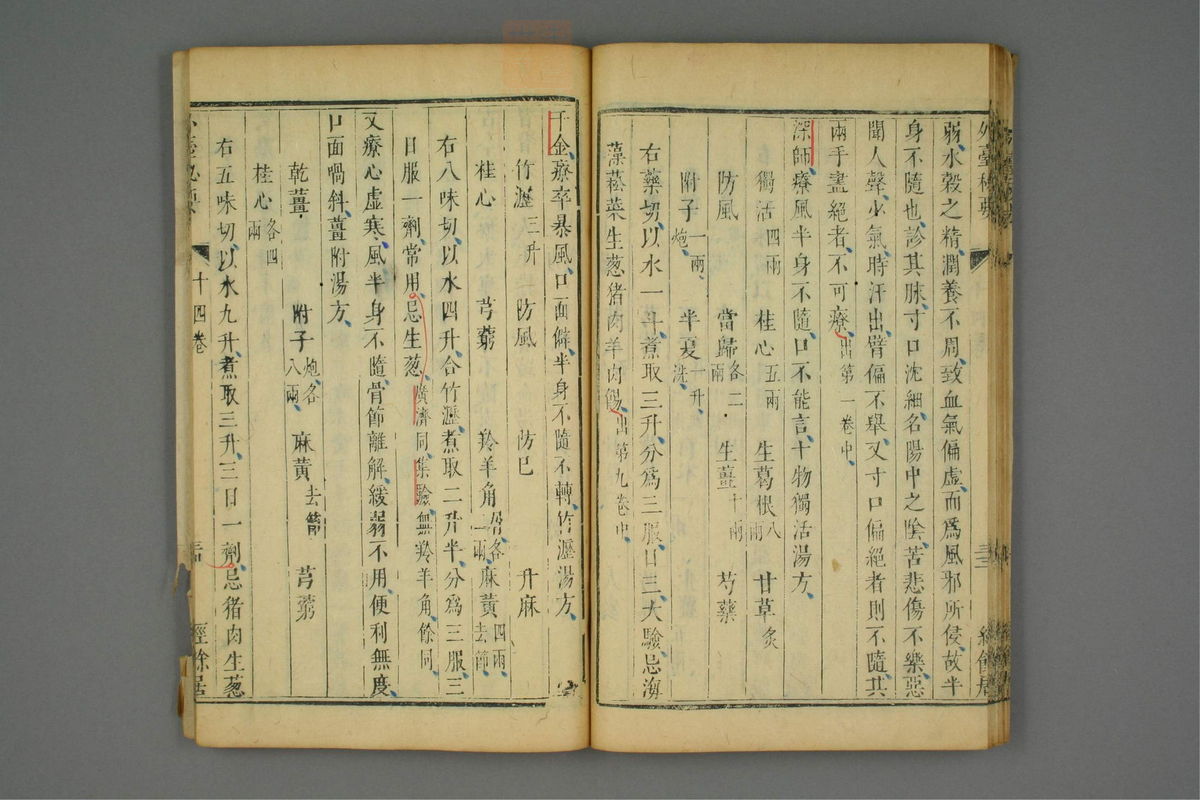 外臺秘要
弱水穀之精潤養不周致血氣偏虛而爲風邪所侵故半
身不隨也診其脉寸口沈細名陽中之陰苦悲傷不樂惡
聞人聲少氣時汗出臂偏不舉又寸口偏絕者則不隨其
兩手盡絕者不可療出第一卷中
深師療風半身不隨口不能言十物獨活湯方
獨活四兩 桂心五兩 生葛根八兩 甘草炙
防風 當歸各二兩 生薑十兩 芍藥
附子一兩炮 半夏一升洗
右藥切以水一斗煮取三升分爲三服日三大驗忌海
藻菘菜生葱猪肉羊肉餳出第九卷中
千金療卒暴風口面僻半身不隨不轉竹瀝湯方
竹瀝三升 防風 防巳 升麻
桂心 芎藭 羚羊角屑各二兩 麻黃四兩去節
右八味切以水四升合竹瀝煮取二升半分爲三服三
日服一劑常用忌生葱廣濟同集驗無羚羊角餘同
又療心虛寒風半身不隨骨節離解緩弱不用便利無度
口面喎斜薑附湯方
乾薑 附子炮各八兩 麻黃去節 芎藭
桂心各四兩
右五味切以水九升煮取三升三日一劑忌猪肉生葱
十四卷 經餘居